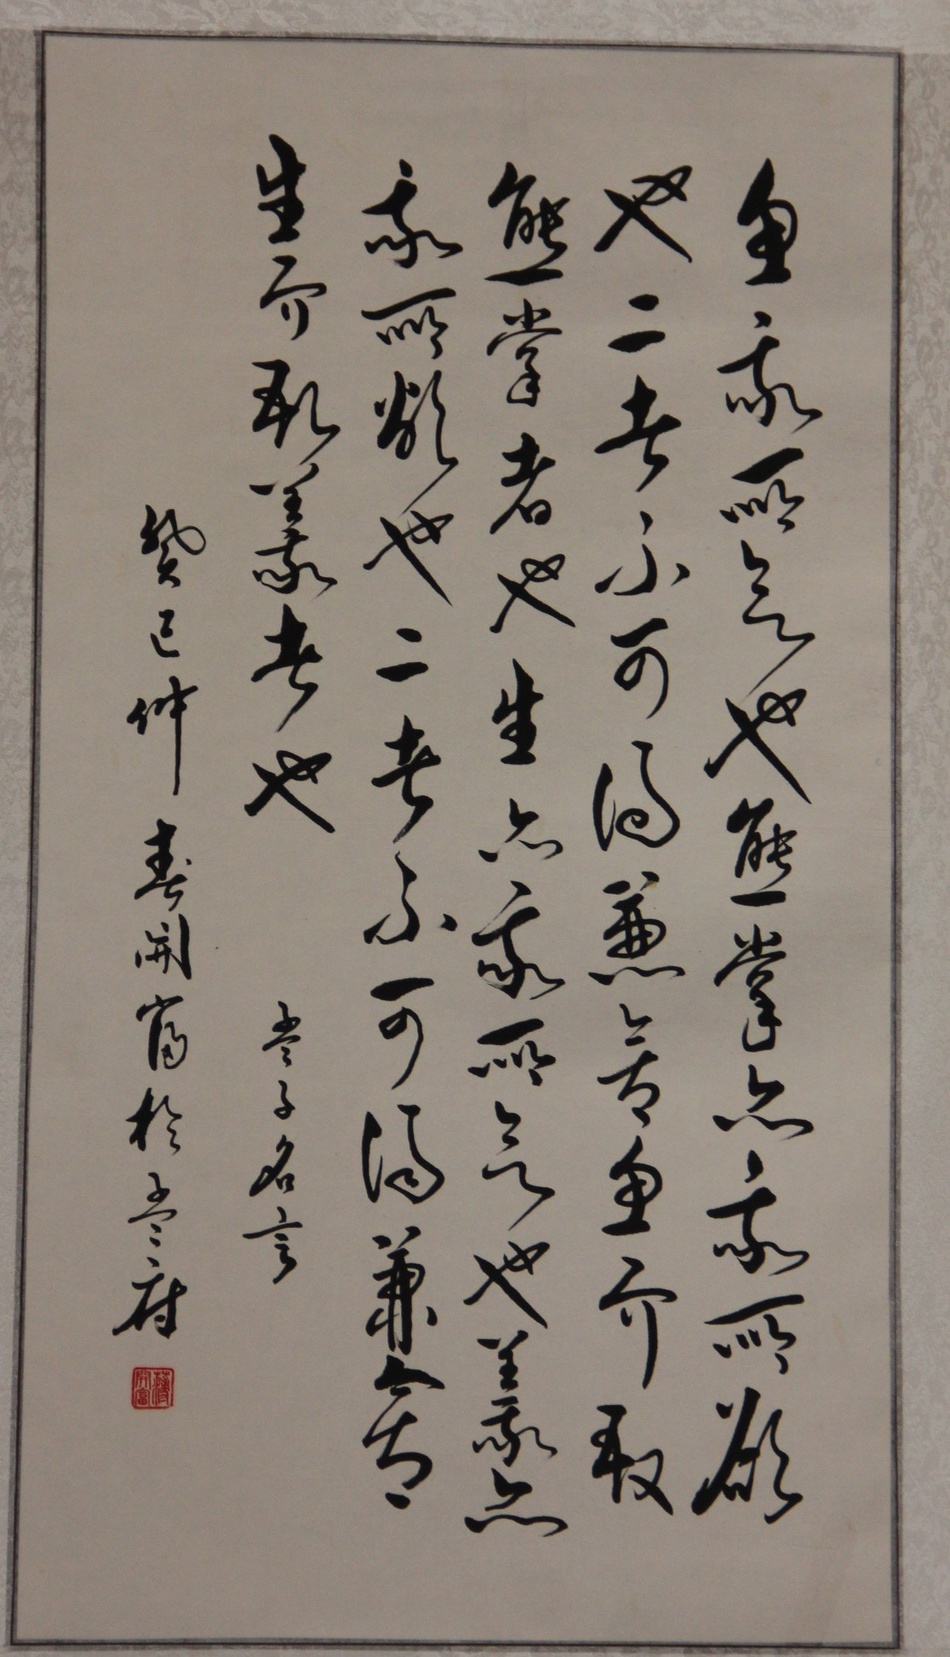 魚我所欲也熊掌亦我所欲
也二者不可得兼舍魚而取
熊掌者也生亦我所欲也義亦
我所欲也二者不可得兼舍
生而取義者也
孟子名言
癸巳仲春開富於孟府